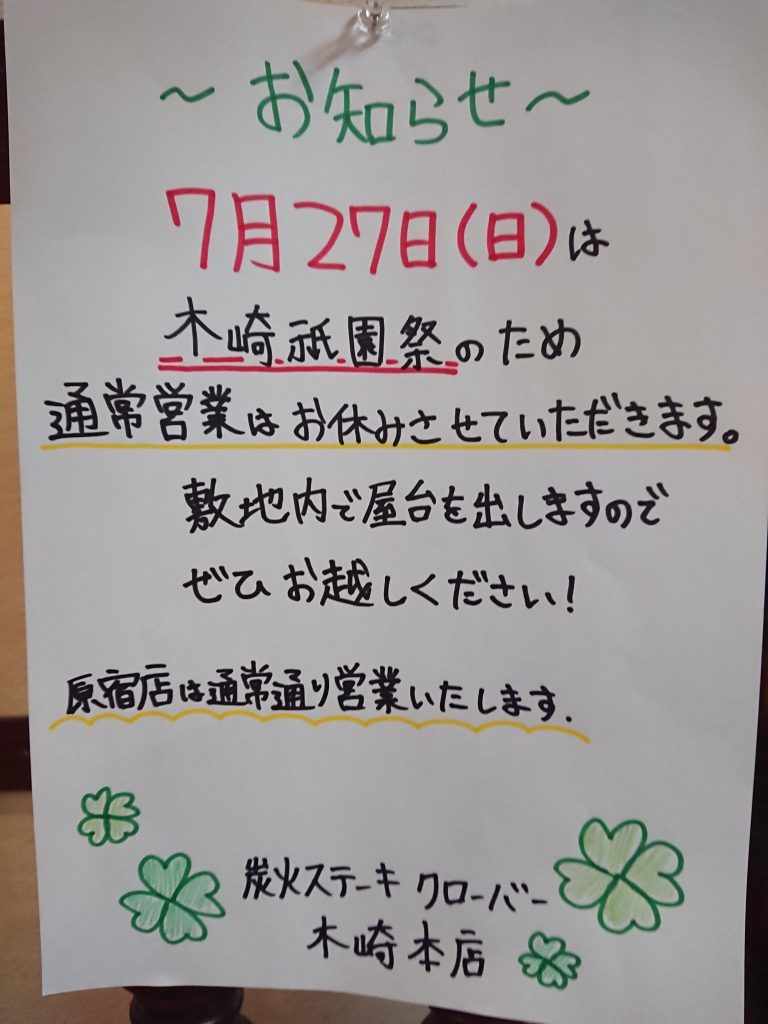 ～お知らせ～
7月27日(日)は
木崎祇園祭のため
通常営業はお休みさせていただきます。
敷地内で屋台を出しますので
ぜひお越しください!
原宿店は通常通り営業いたします.
炭火ステーキ クローバー
木崎本店